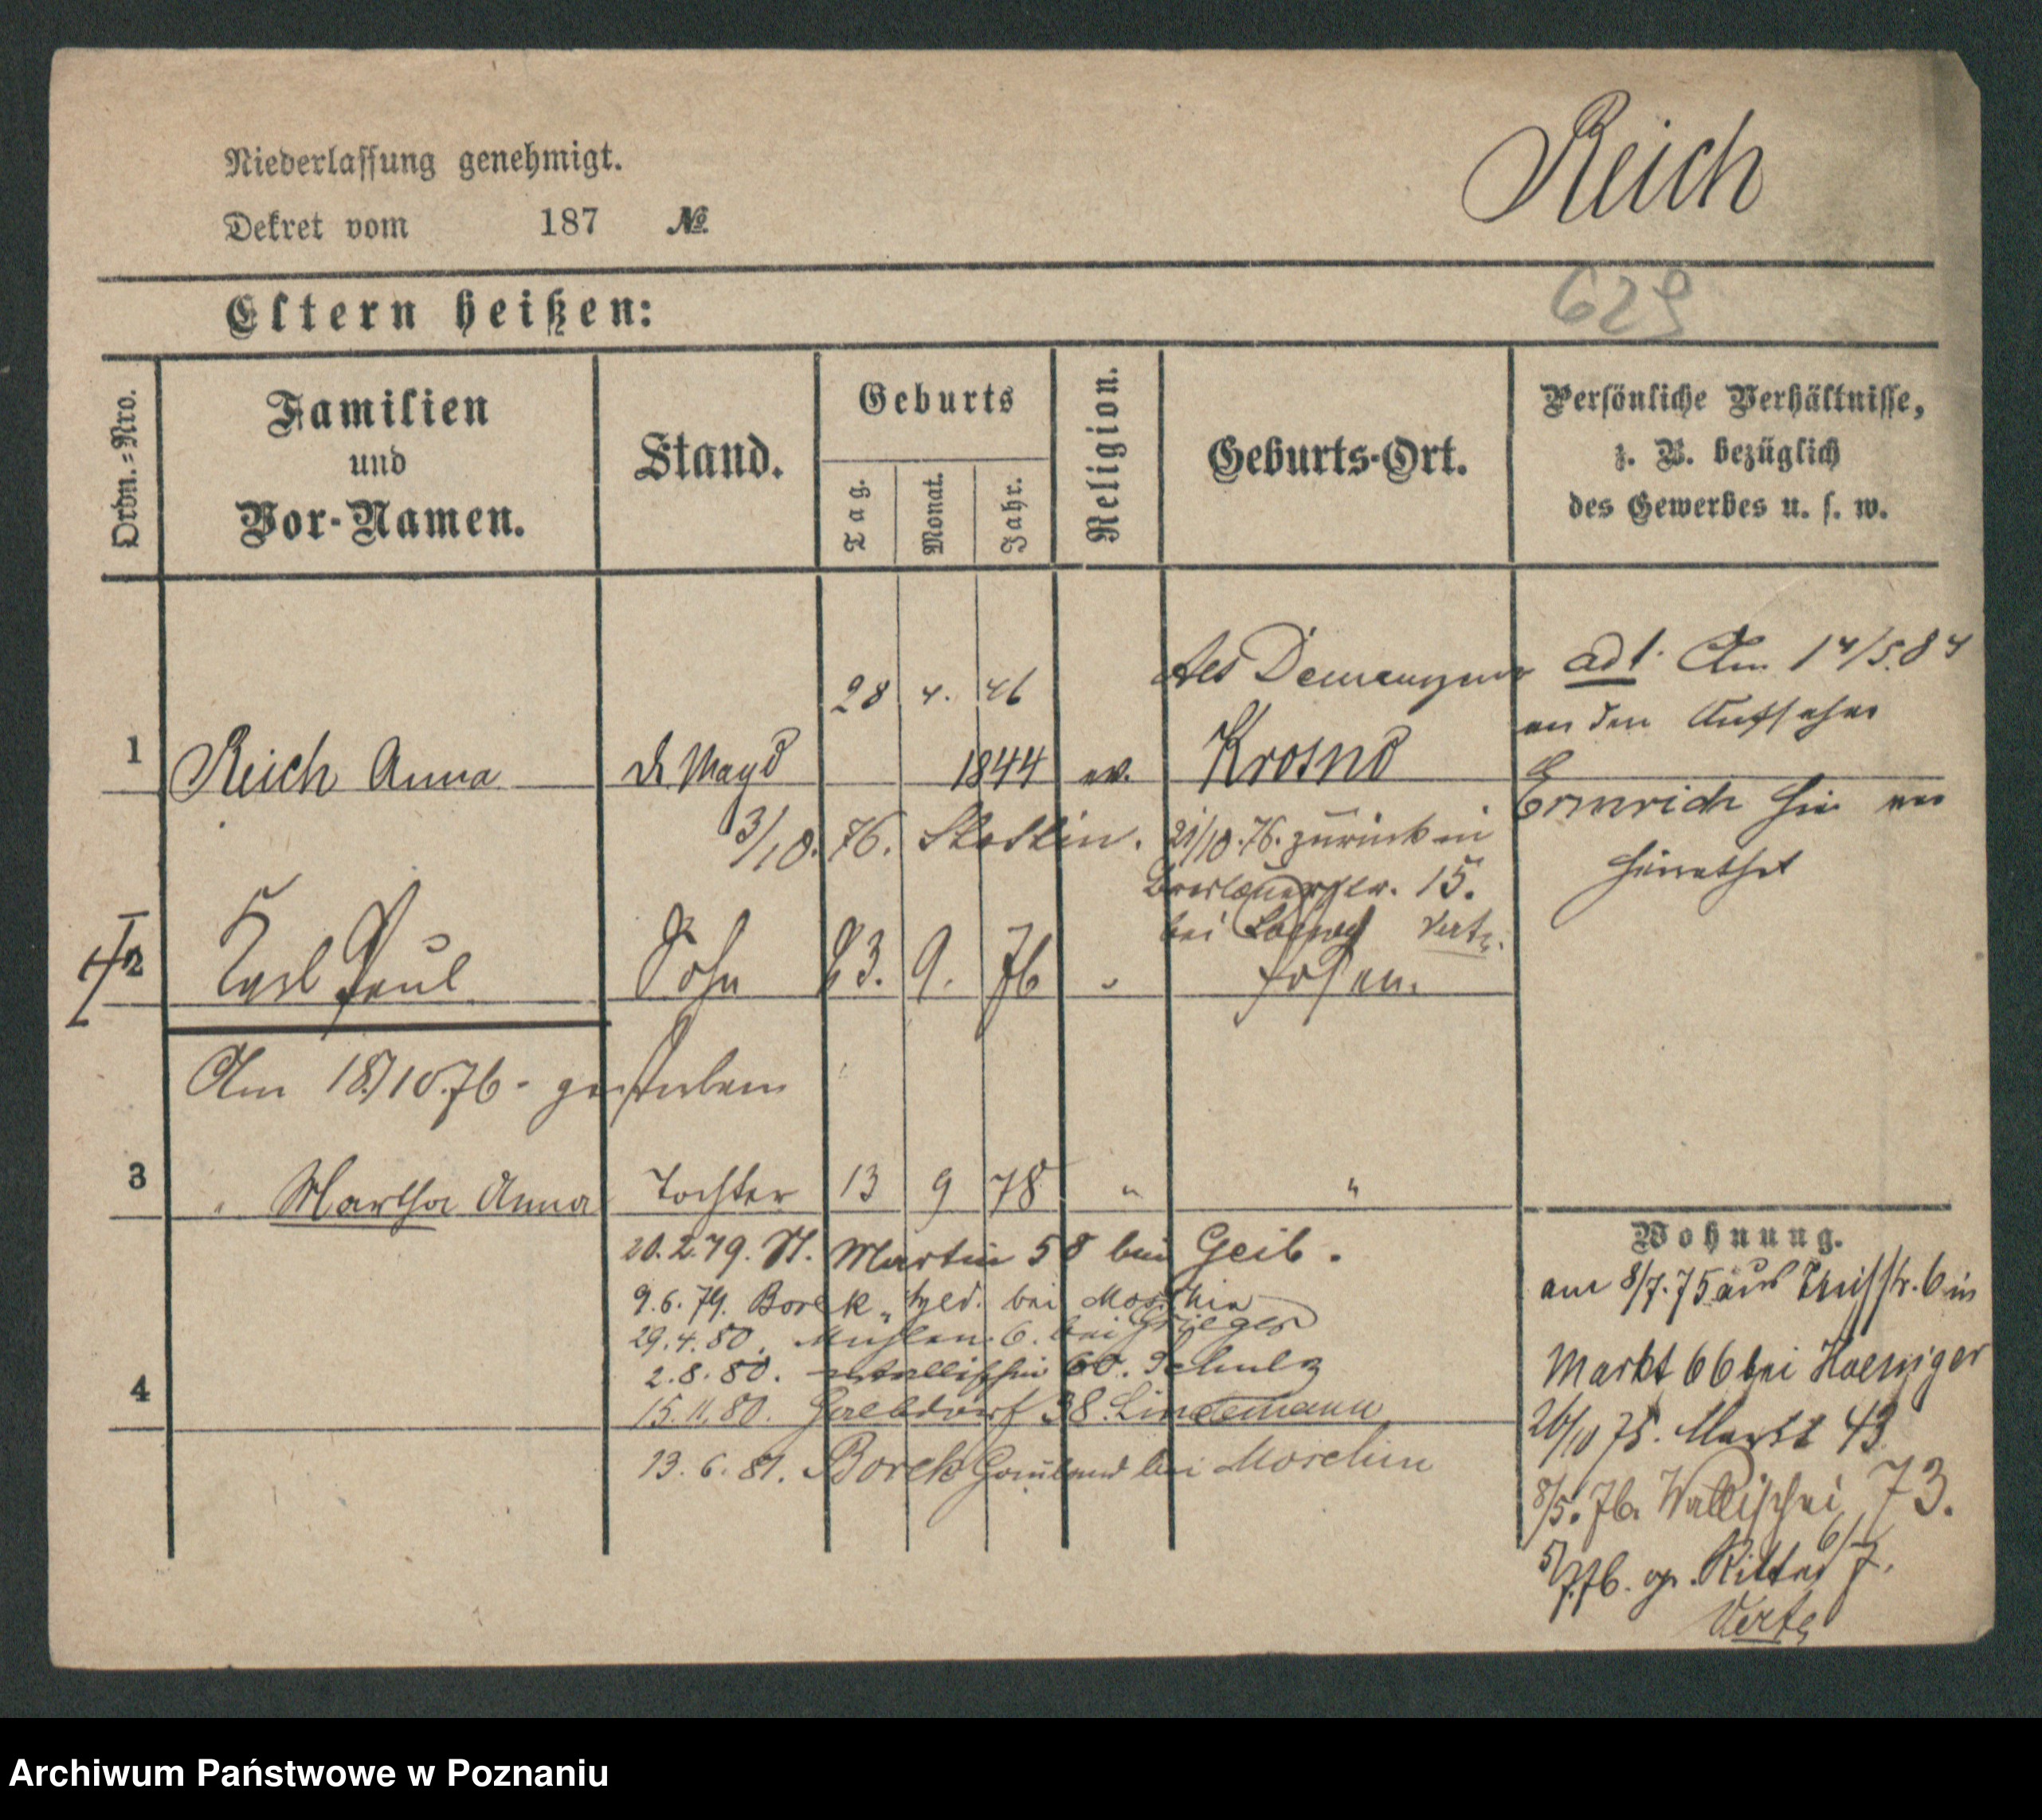 Reich
Niederlassung genehmigt.
Dekret vom 187 №
629
Eltern heißen:
Ordn.-Nro.
Familien
und
Vor-Namen.
Stand.
Geburts
Tag.
Monat.
Jahr.
Religion.
Geburts-Ort.
Persönliche Verhältnisse,
z. B. bezüglich
des Gewerbes u. s. w.
28 4. 46
ad 1. Am 14/5.84
an den Aufseher
1 Reich Anna d. Magd 1844 ev. Krosno
Ermrich hier ver
heirathet
3/10. 76. Stettin. 21/10.76. zurück in
Breslauerstr. 15.
bei Verte.
2 Karl Paul Sohn 23. 9. 76 " Posen.
Am 18/10.76. gestorben
3 " Martha Anna Tochter 13 9 78 " "
20.2.79. St. Martin 58 bei Geib.
9.6.79. Borek, bei Moschin
29.4.80. Mühlen. 6. bei Grieger
2.8.80. Wallischei 60. Schulz
4
15.11.80. 38. Lindemann
13.6.81. Borek bei Moschin
Wohnung.
am 8/7.75 aus 6 in
Markt 66 bei Hoeniger
26/10 75. Markt 43
8/5.76. Wallischei 73.
5/7.76. Ritter 6/7.
Verte
Archiwum Państwowe w Poznaniu